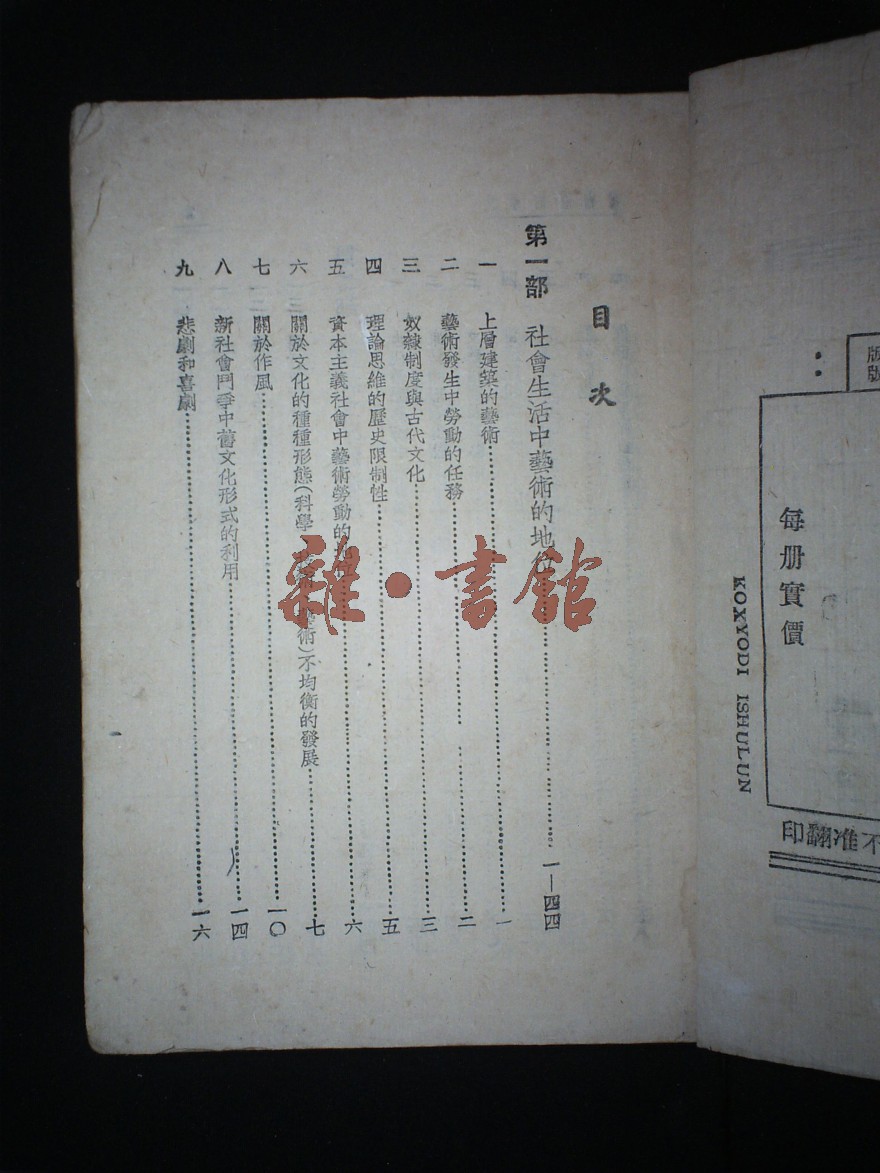 版
號
每册實價
KOXYODI ISHULUN
印翻准不
目次
第一部 社會生活中藝術的地 一—四四
一 上層建築的藝術 一
二 藝術發生中勞動的任務 二
三 奴隸制度與古代文化 三
四 理論思維的歷史限制性 五
五 資本主義社會中藝術勞動的 六
六 關於文化的種種形態(科學 術)不均衡的發展 七
七 關於作風 一〇
八 新社會鬥爭中舊文化形式的利用 一四
九 悲劇和喜劇 一六
雜·書館